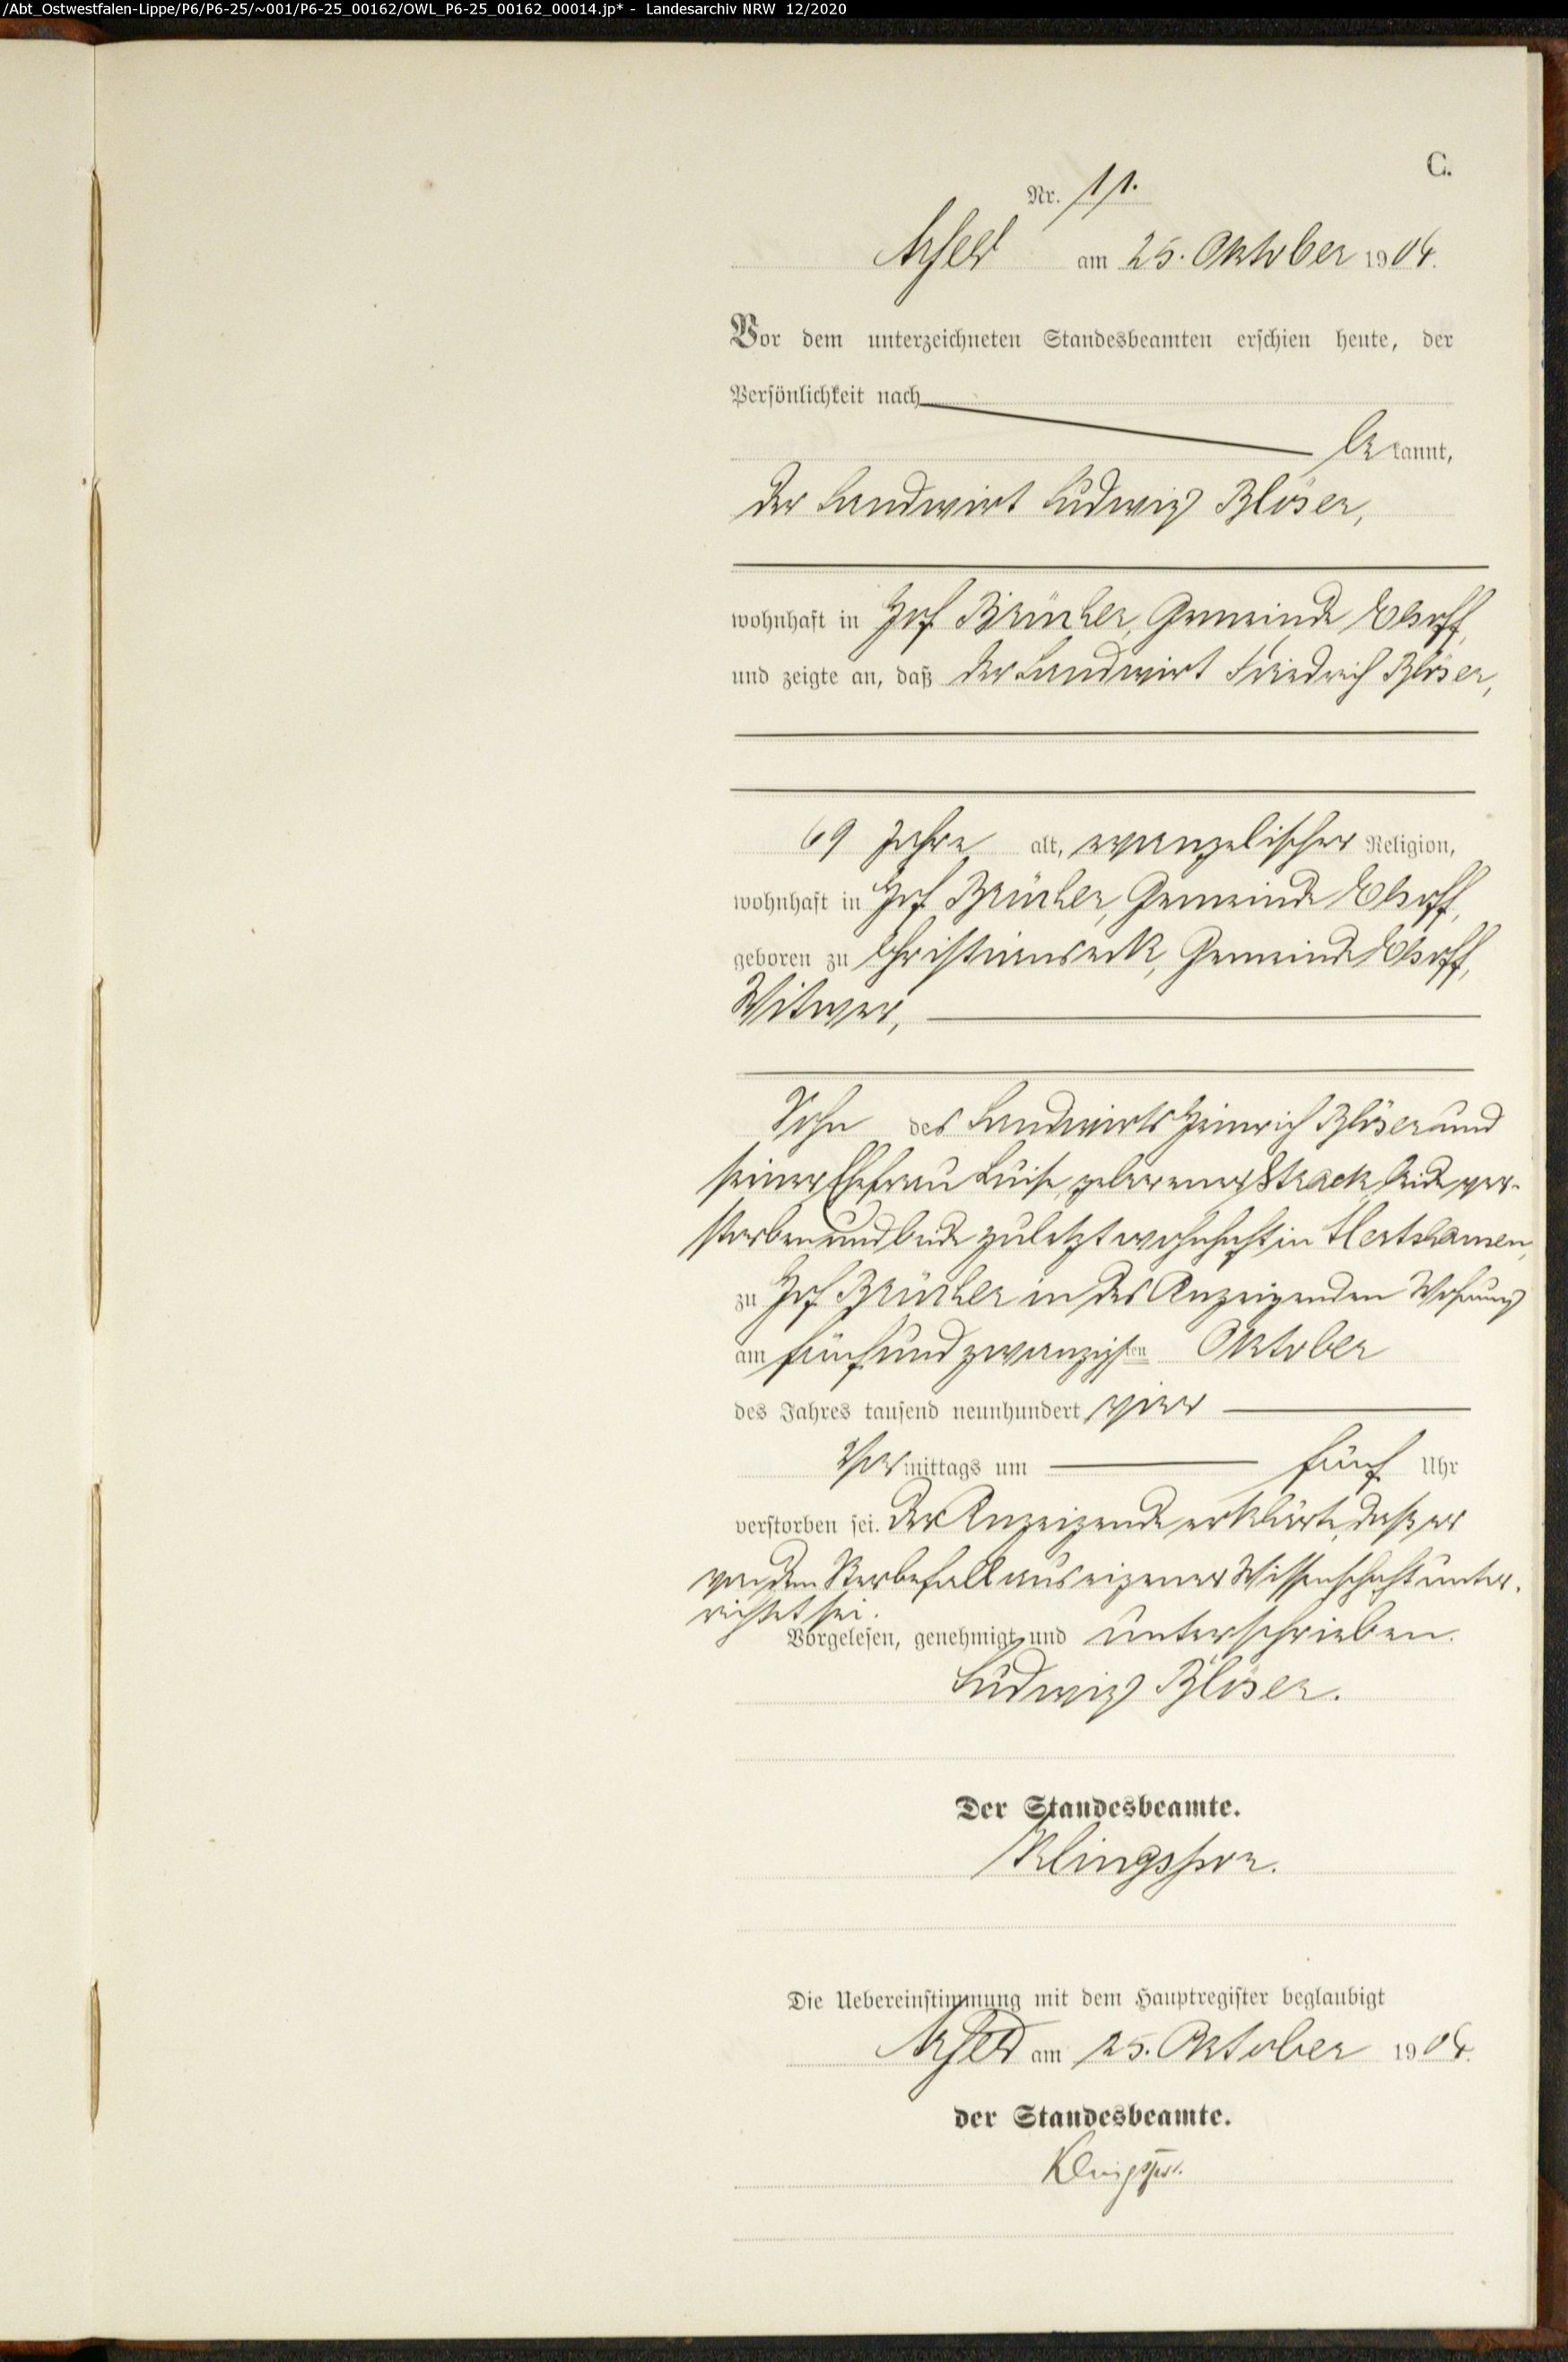 /Abt_Ostwestfalen-Lippe/P6/P6-25/~001/P6-25_00162/OWL_P6-25_00162_00014.jp* - Landesarchiv NRW 12/2020
C.
Nr. 11.
Arfeld am 25. Oktober 1904.
Vor dem unterzeichneten Standesbeamten erschien heute, der
Persönlichkeit nach
bekannt,
der Landwirt Ludwig Blöser,
wohnhaft in Hof Brücher, Gemeinde Elsoff,
und zeigte an, daß der Landwirt Friedrich Blöser,
69 Jahre alt, evangelischer Religion,
wohnhaft in Hof Brücher, Gemeinde Elsoff,
geboren zu Christianseck, Gemeinde Elsoff,
Witwer,
Sohn des Landwirts Heinrich Blöser und
seiner Ehefrau Luise, geborener Strack, beide ver-
storben und beide zuletzt wohnhaft in
zu Hof Brücher in des Anzeigenden Wohnung
am fünfundzwanzigsten Oktober
des Jahres tausend neunhundert vier
Vormittags um fünf Uhr
verstorben sei. Der Anzeigende erklärte, daß er
von dem Sterbefall aus eigener Wissenschaft unter-
richtet sei.
Vorgelesen, genehmigt und unterschrieben.
Ludwig Blöser.
Der Standesbeamte.
Klingspor.
Die Uebereinstimmung mit dem Hauptregister beglaubigt
Arfeld am 25. Oktober 1904.
der Standesbeamte.
Klingspor.